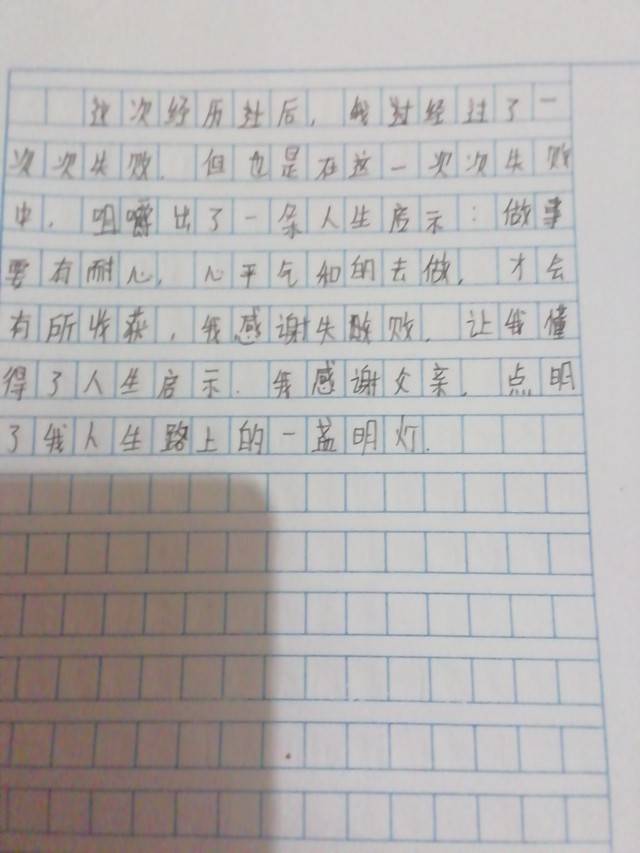 这次经历过后，我对经过了一
次次失败．但也是在这一次次失败
中．咀嚼出了一条人生启示：做事
要有耐心，心平气和的去做，才会
有所收获，我感谢失败，让我懂
得了人生启示．我感谢父亲，点明
了我人生路上的一盏明灯．